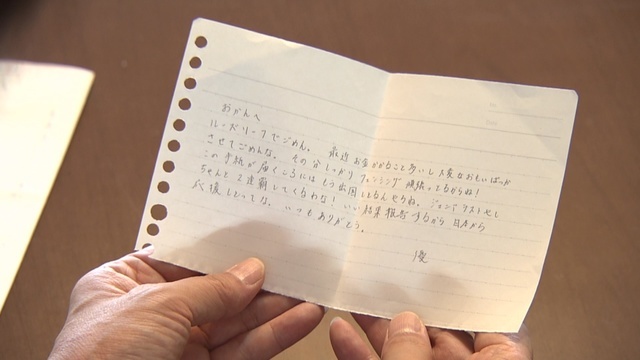 おかんへ
ルーズリーフでごめん。 最近お金かかること多いし大変なおもいばっか
させてごめんな。その分しっかりフェンシング頑張ってるからね!
この手紙が届くころにはもう出国してるんやろね。ジュニアラストやし
ちゃんと2連覇してくるわな! いい結果報告するから日本から
応援しとってな。いつもありがとう。
優